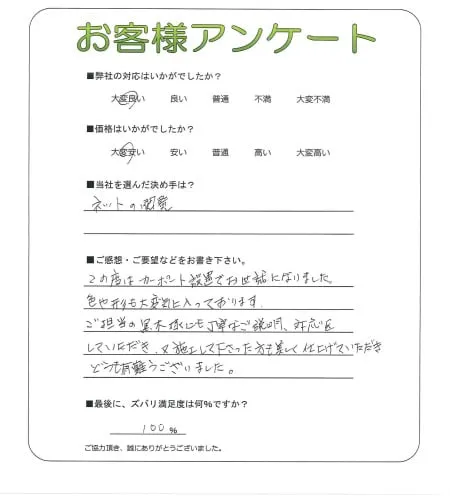 お客様アンケート
■弊社の対応はいかがでしたか？
大変良い 良い 普通 不満 大変不満
■価格はいかがでしたか？
大変安い 安い 普通 高い 大変高い
■当社を選んだ決め手は？
ネットの閲覧
■ご感想・ご要望などをお書き下さい。
この度はカーポート設置でお世話になりました。
色や形も大変気に入っております。
ご担当の黒木様にも丁寧なご説明、対応を
していただき、又施工して下さった方も美しく仕上げていただき
どうも有難うございました。
■最後に、ズバリ満足度は何%ですか？
100 %
ご協力頂き、誠にありがとうございました。